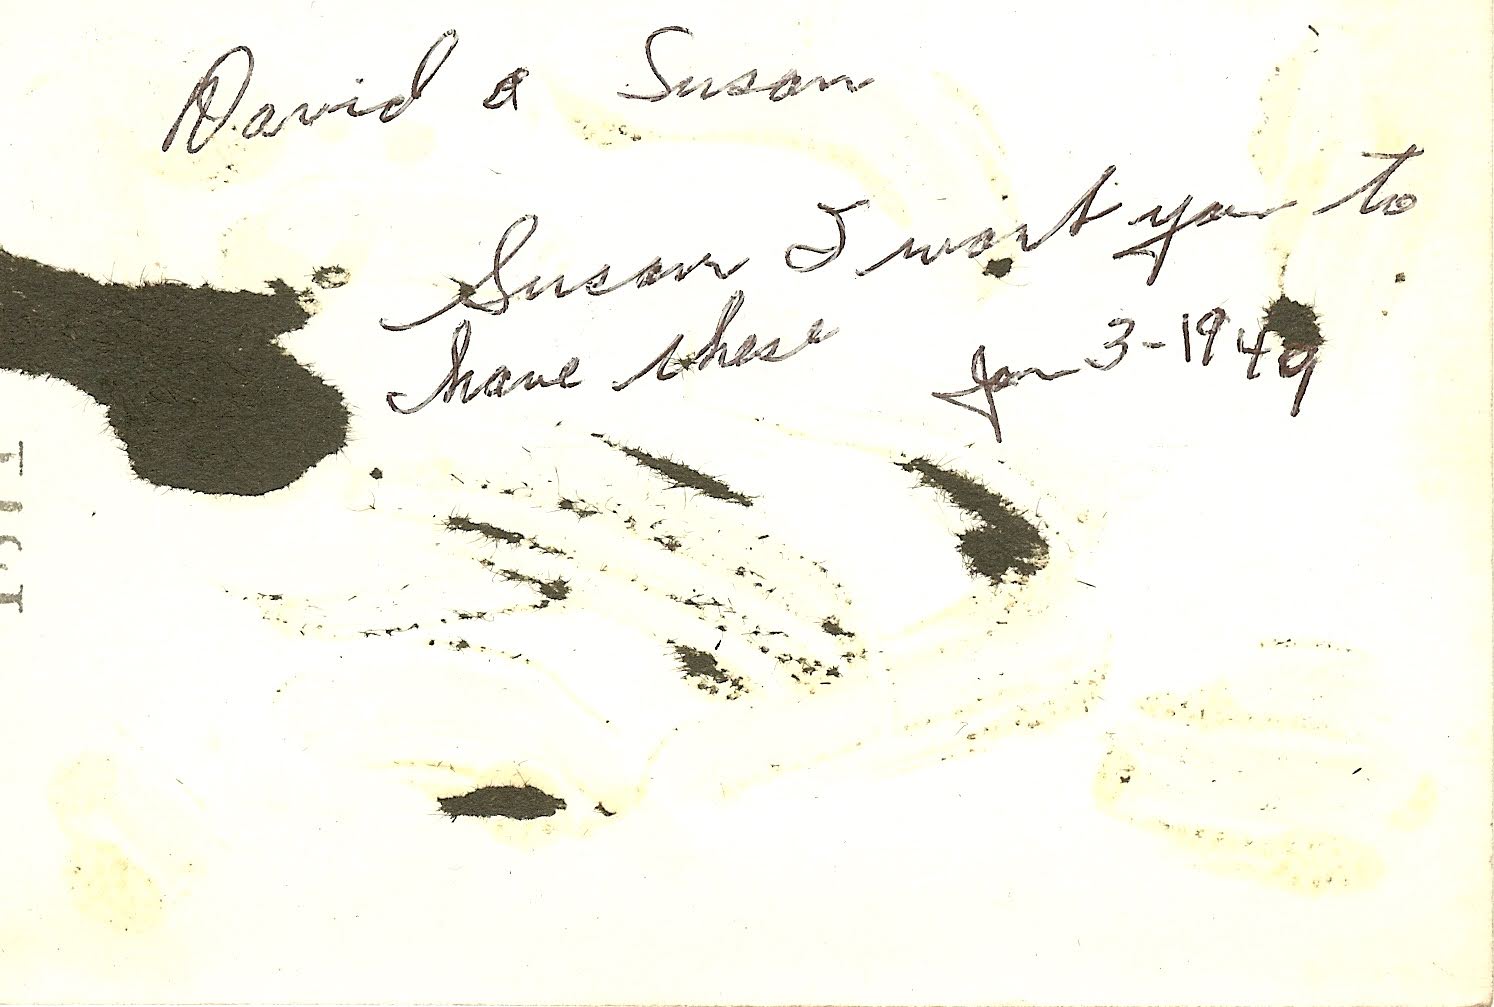 David & Susan
Susan I want you to
have these
Jan 3-1949